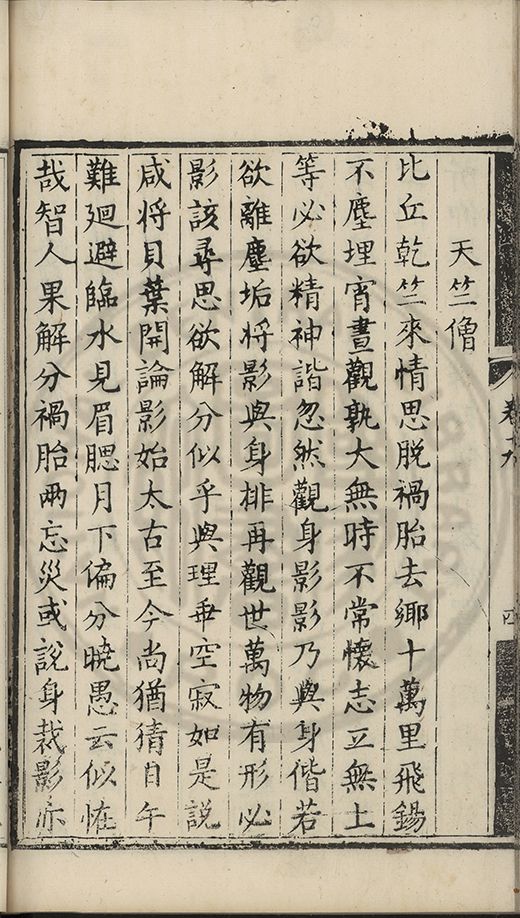 卷十九
四
天竺僧
比丘乾竺來情思脫禍胎去鄉十萬里飛錫
不塵埋宵晝觀孰大無時不常懷志立無上
等必欲精神諧忽然觀身影影乃與身偕若
欲離塵垢將影與身排再觀世萬物有形必
影該尋思欲解分似乎與理乖空寂如是說
咸將貝葉開論影始太古至今尚猶猜日午
難廻避臨水見眉腮月下偏分曉愚云似恠
哉智人果解分禍胎兩忘災或說身裁影亦